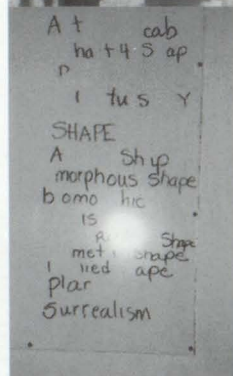 A t cab
ha t 4 S ap
n
I tu s Y
SHAPE
A Shup
morphous shape
b omo hic
is
R Shape
met shape
I lied ape
plar
Surrealism